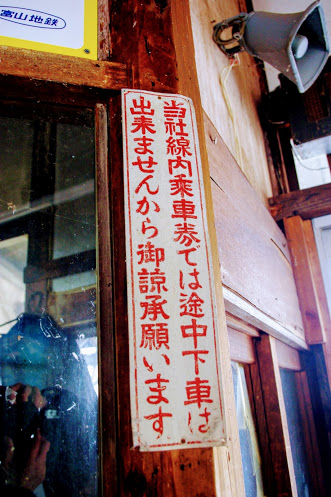 富山地鉄
当社線内乗車券では途中下車は
出来ませんから御諒承願います